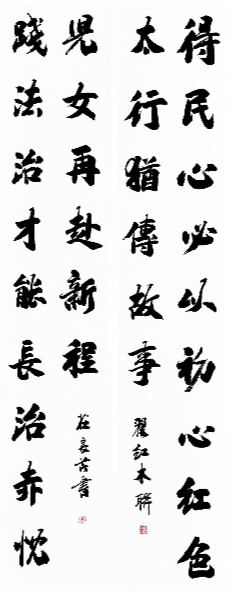 得民心必以初心红色
太行猶傳故事
翟红本聯
踐法治才能長治赤忱
兒女再赴新程
書